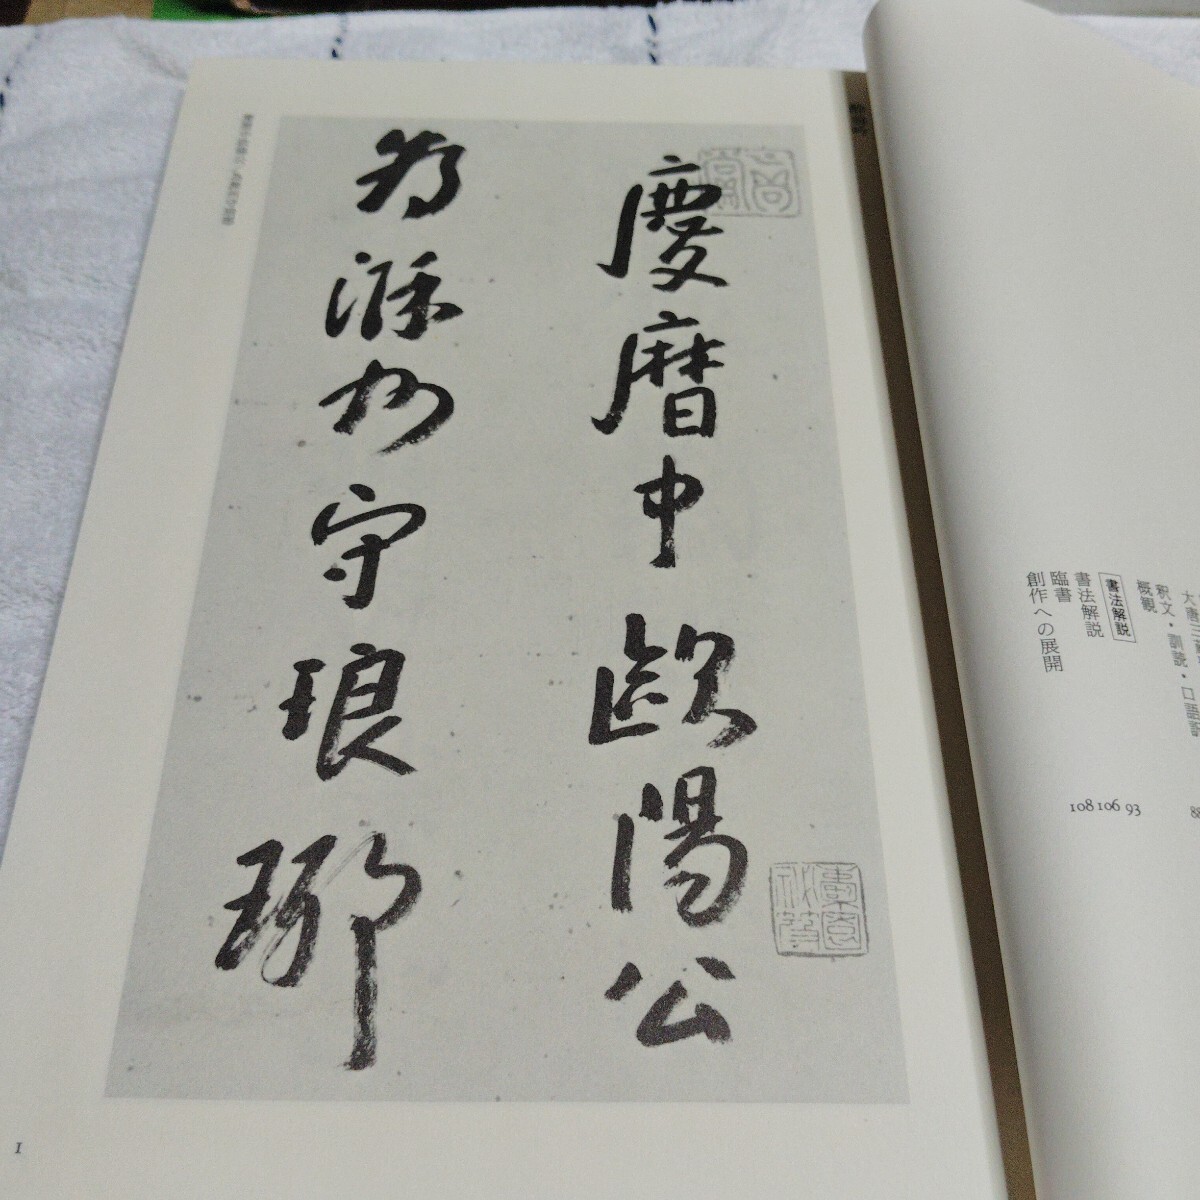 慶曆中歐陽公
為滁州守琅琊
大唐三蔵
釈文・訓読・口語訳
概観
書法解説
書法解説
臨書
創作への展開
88
93
106
108
1